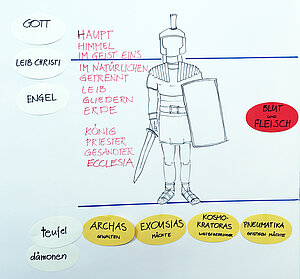 GOTT
LEIB CHRISTI
ENGEL
HAUPT
HIMMEL
IM GEIST EINS
IM NATÜRLICHEN
GETRENNT
LEIB
GLIEDERN
ERDE
KÖNIG
PRIESTER
GESANDTER
ECCLESIA
BLUT
UND
FLEISCH
teufel
dämonen
ARCHAS
GEWALTEN
EXOUSIAS
MÄCHTE
KOSMO-
KRATORAS
WELTBEHERRSCHER
PNEUMATIKA
GEISTIGE MÄCHTE